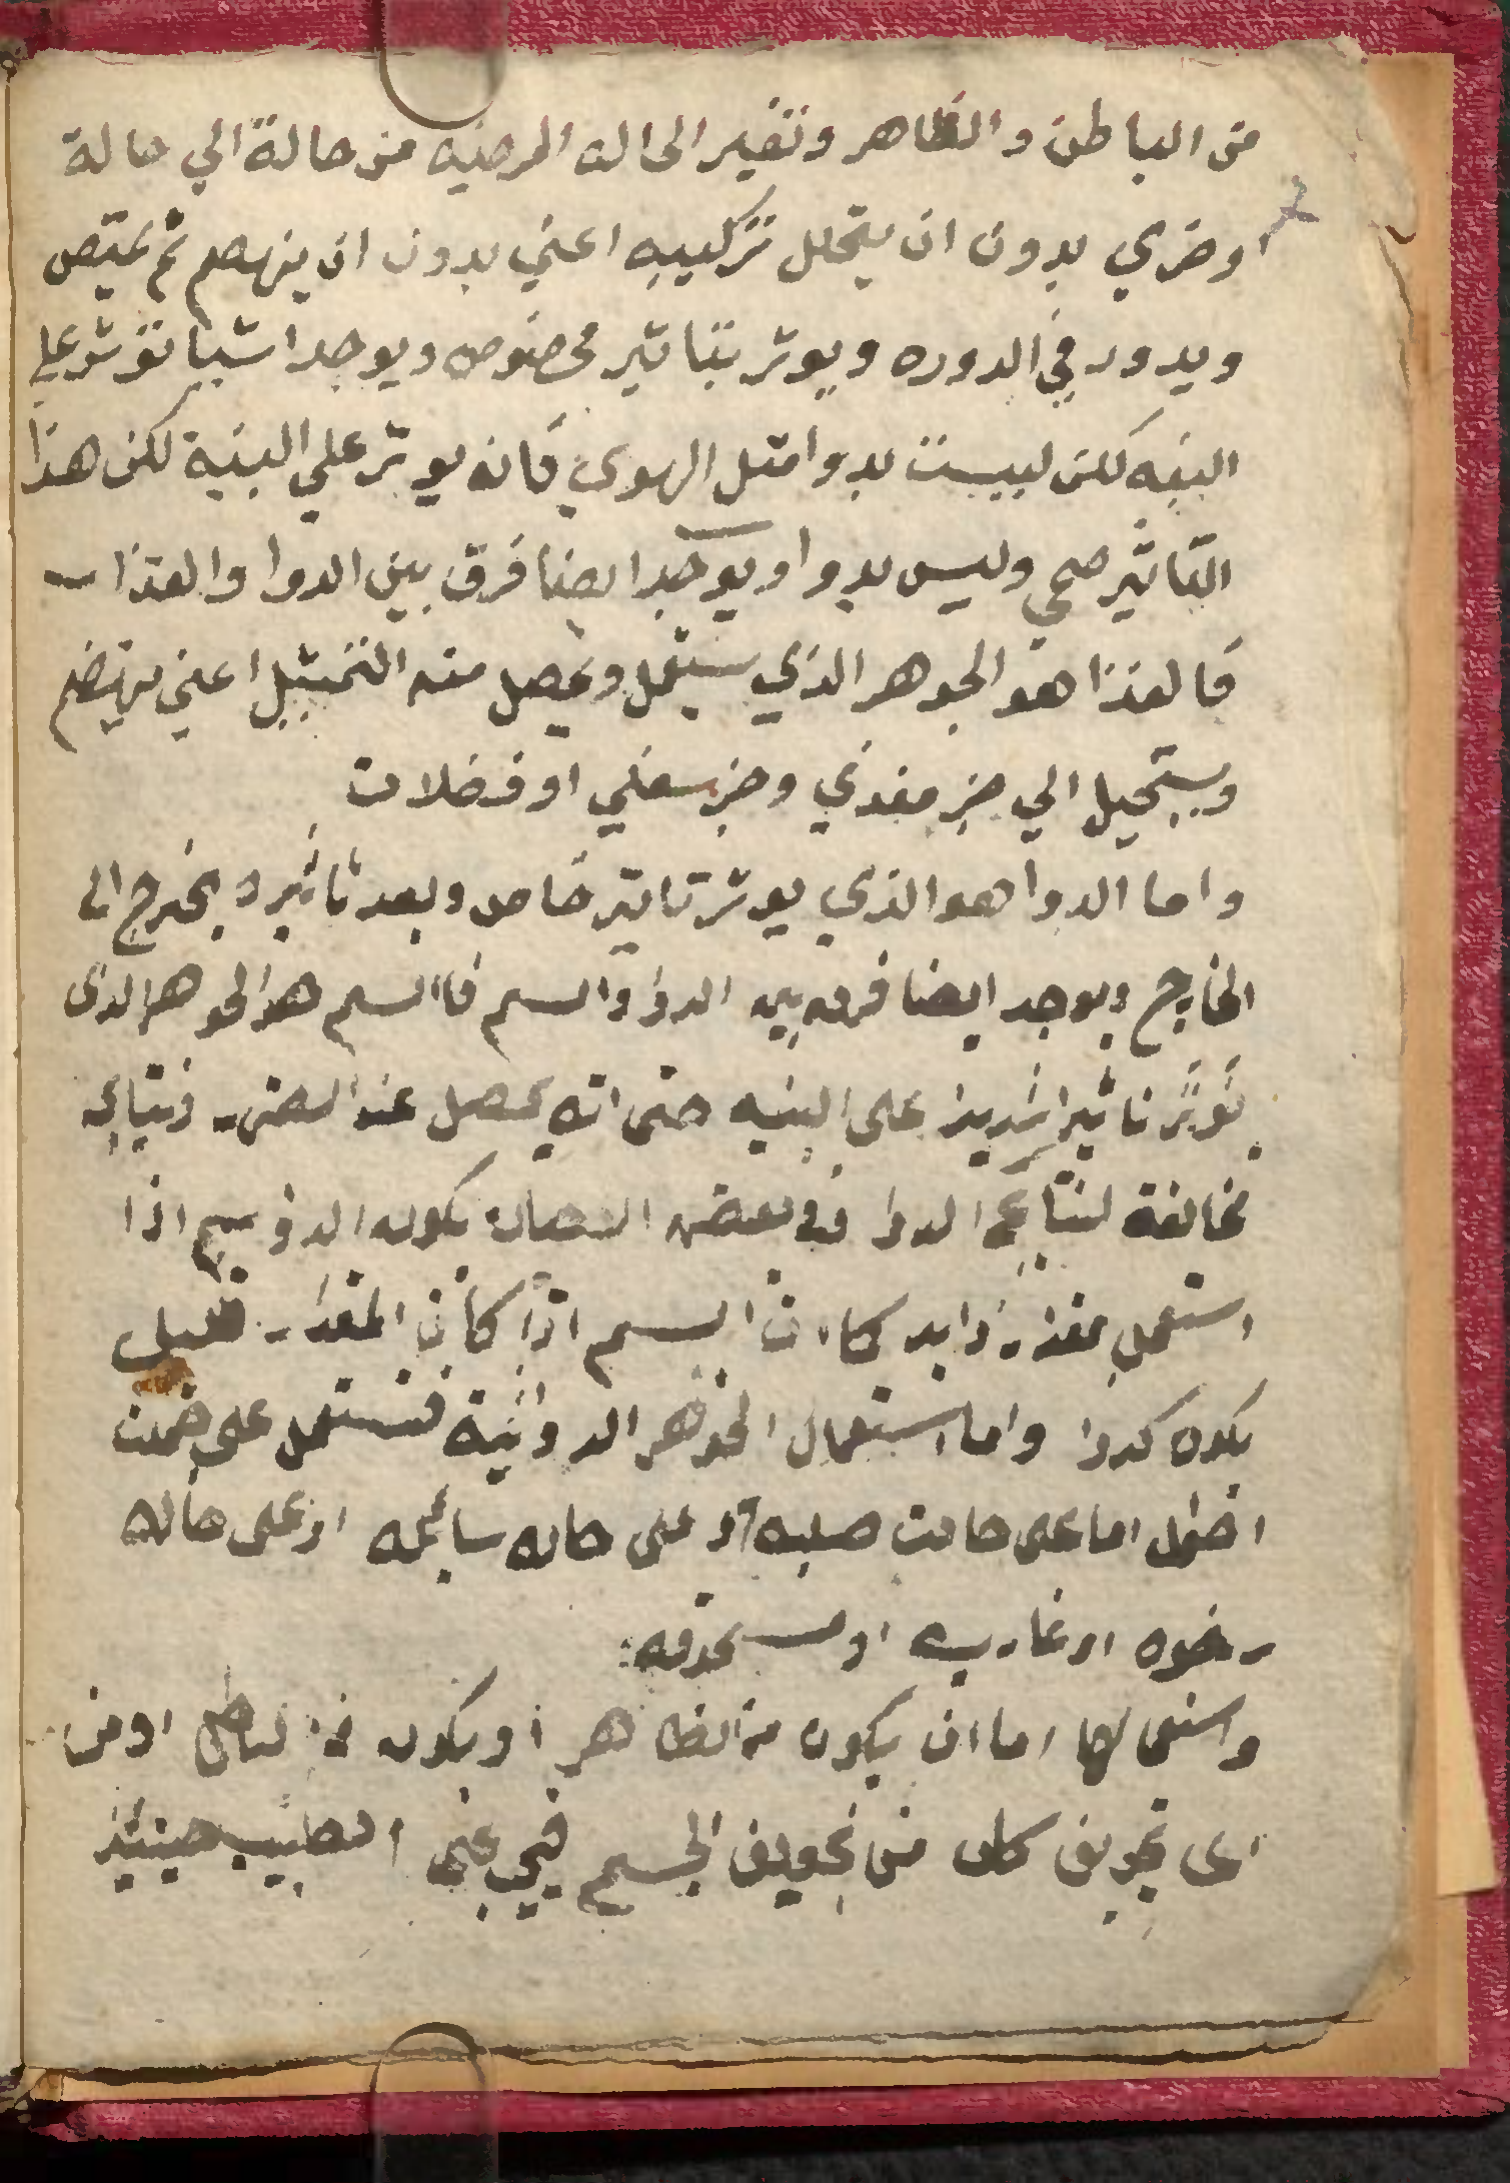 من الباطن والظاهر وتغير الحالة المرضيه من حالة الي حالة
اخري بدون ان يتحلل تركيبه اعني بدون ان ينهضم ثم يمتص
ويدور في الدوره ويوثر بتاثير مخصوص ويوجد اشيا توثر علي
البنيه لكن ليست بدوا مثل الهوي فانه يوثر علي البنية لكن هذا
التاثير صحي وليس بدوا ويوجد ايضا فرق بين الدوا والغذا
فالغذا هو الجوهر الذي يستعمل ويحصل منه التمثيل اعني ينهضم
ويستحيل الي جز مغذي وجز سفلي او فضلات
واما الدوا هو الذي يوثر تاثير خاص وبعد تاثيره يخرج الى
الخارج ويوجد ايضا فرق بين الدوا والسم فاالسم هو الجوهر الذى
يوثر تاثيرا شديدا على البنيه حتى انه يحصل عنه الضرر ونتايجه
مخالفة لنتايج الدوا وفي بعض الاحيان يكون الدوا سم اذا
استعمل بمقدار زايد كما ان السم اذا كان المقدار قليل
يكون كدوا واما استعمال الجواهر الدوائية فتستعمل على خمسة
احوال اما على حالت صلبه او على حاله سائله او على حاله
رخوه او غازيه او مسحوقه
واستعمالها اما ان يكون من الظاهر او يكون من الباطن او من
اى تجويف كان من تجويف الجسم فيجب على الطبيب حينئذ